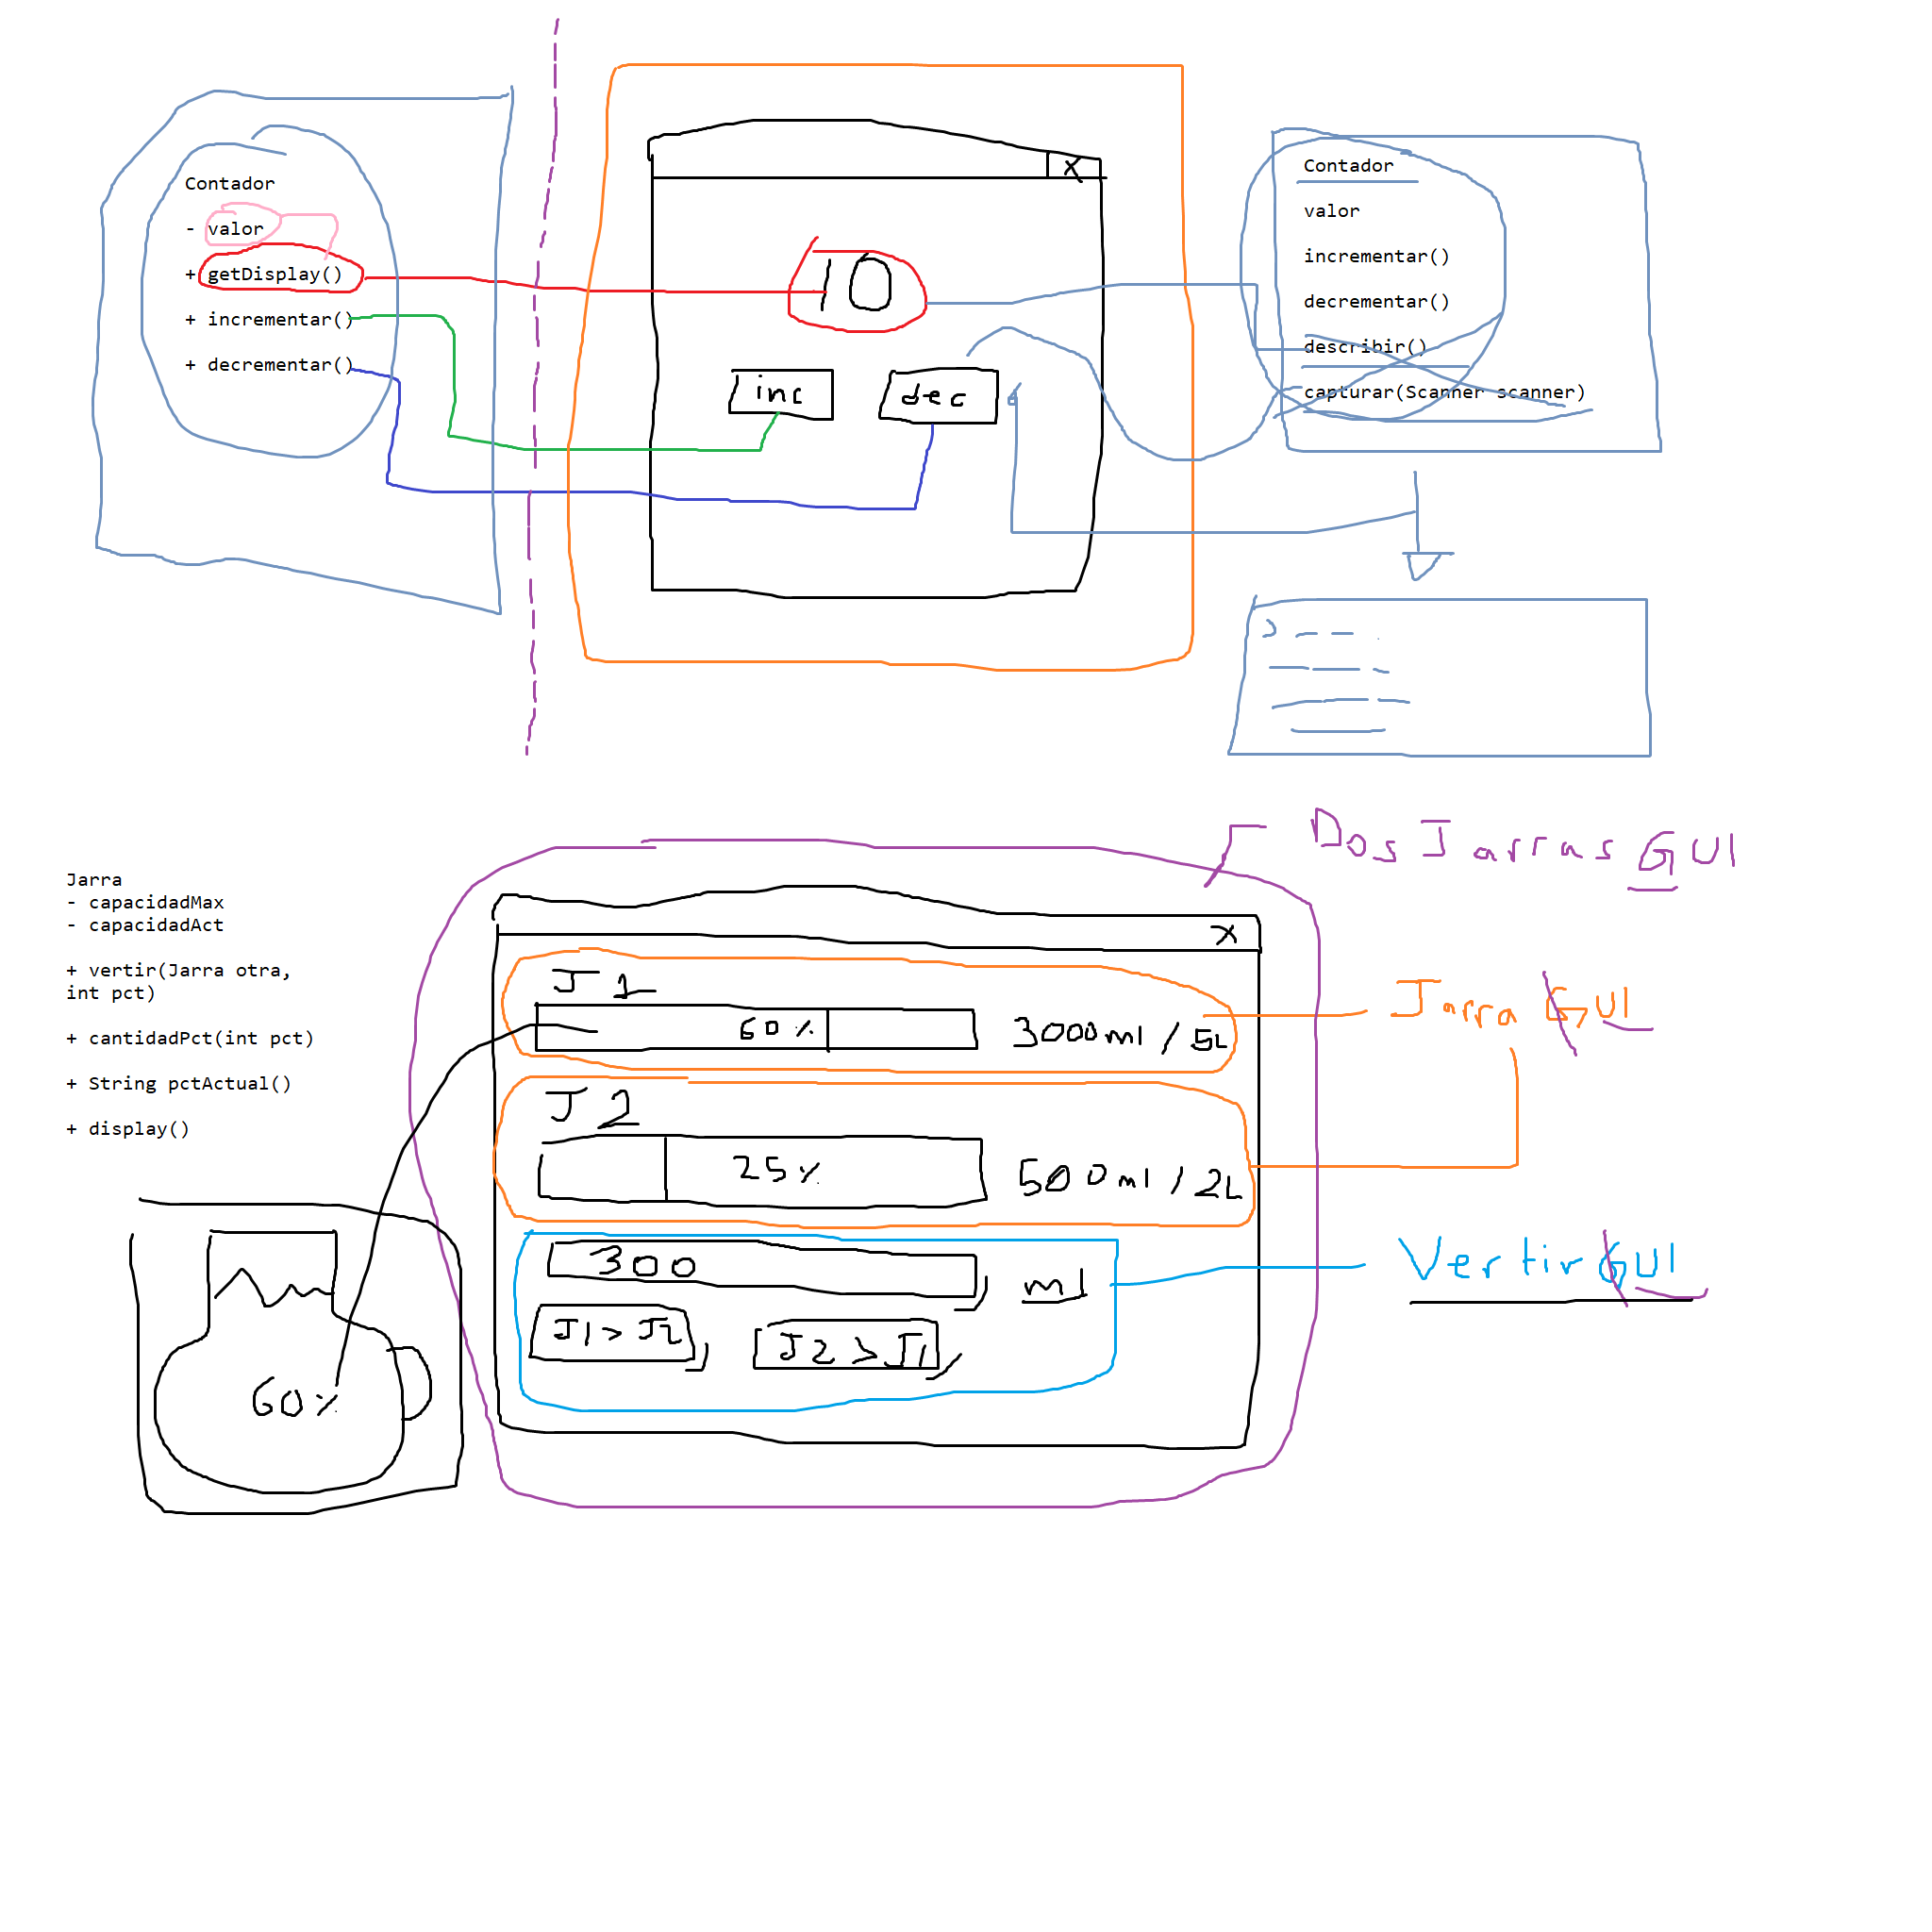 Contador
- valor
+ getDisplay()
+ incrementar()
+ decrementar()
X
10
inc
dec
Contador
valor
incrementar()
decrementar()
describir()
capturar(Scanner scanner)
Dos Jarras GUI
Jarra
- capacidadMax
- capacidadAct
+ vertir(Jarra otra,
int pct)
+ cantidadPct(int pct)
+ String pctActual()
+ display()
X
J1
60%
3000ml / 5L
Jarra GUI
J2
25%
500ml / 2L
300
ml
J1 > J2
J2 > J1
Vertir GUI
60%